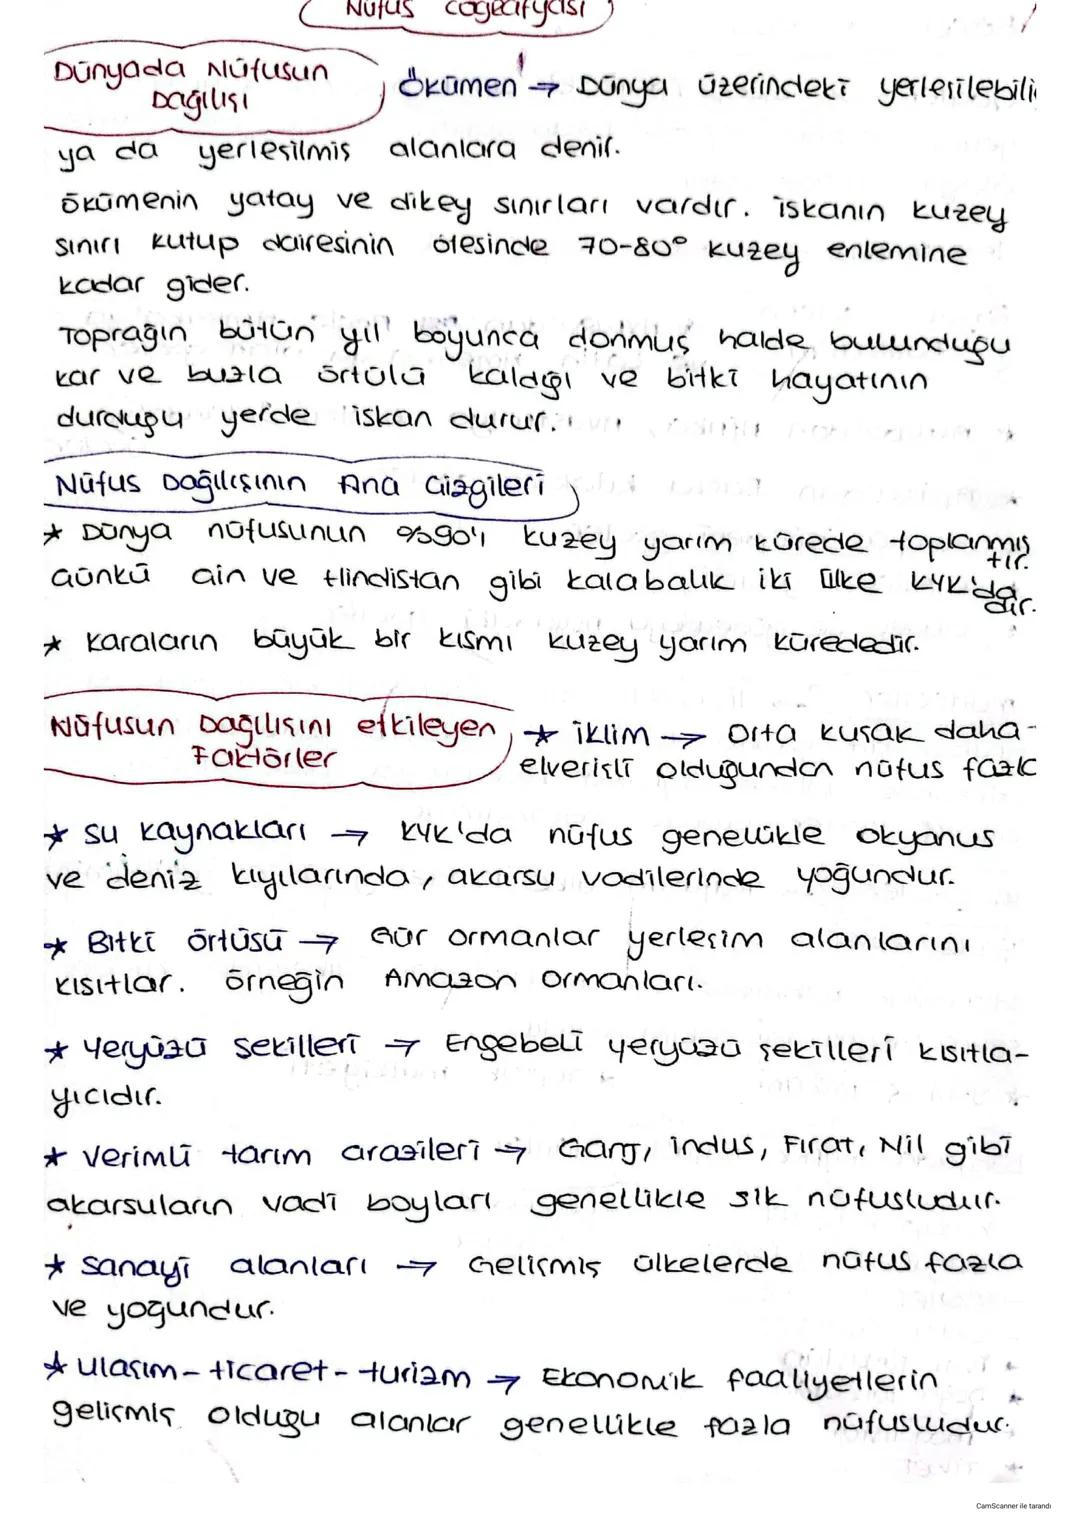 Nüfus Coğrafyası
Dünyada Nüfusun
Dağılışı
Ökümen → Dünya üzerindeki yerleşilebili
ya da yerleşilmiş alanlara denir.
Ökümenin yatay ve dikey sınırları vardır. İskanın kuzey
sınırı kutup dairesinin ötesinde 70-80° kuzey enlemine
kadar gider.
Toprağın bütün yıl boyunca donmuş halde bulunduğu
kar ve buzla örtülü kaldığı ve bitki hayatının
durduğu yerde iskan durur.
Nüfus Dağılışının Ana Çizgileri
* Dünya nüfusunun %90'ı kuzey yarım kürede toplanmış
tır.
Çünkü Çin ve Hindistan gibi kalabalık iki ülke KYK'da
dır.
* Karaların büyük bir kısmı kuzey yarım kürededir.
Nüfusun Dağılışını etkileyen
Faktörler
* İklim → Orta kuşak daha
elverişli olduğundan nüfus fazla
* Su kaynakları → KYK'da nüfus genellikle okyanus
ve deniz kıyılarında, akarsu vadilerinde yoğundur.
* Bitki örtüsü → Gür ormanlar yerleşim alanlarını
kısıtlar. Örneğin Amazon Ormanları.
* Yeryüzü şekilleri → Engebeli yeryüzü şekilleri kısıtla-
yıcıdır.
* Verimli tarım arazileri → Ganj, İndus, Fırat, Nil gibi
akarsuların vadi boyları genellikle sık nüfusludur.
* Sanayi alanları → Gelişmiş ülkelerde nüfus fazla
ve yoğundur.
* Ulaşım - ticaret - turizm → Ekonomik faaliyetlerin
gelişmiş olduğu alanlar genellikle fazla nüfusludur.
CamScanner ile tarandı